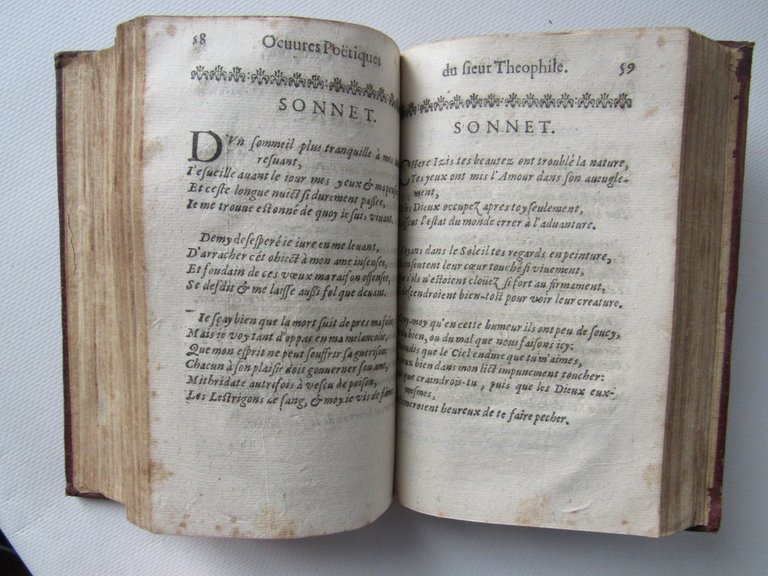 58 Oeuures Poëtiques
SONNET.
D'Vn sommeil plus tranquille à mes
resuant,
I'esueille auant le iour mes yeux & ma pensée
Et ceste longue nuict si durement passée,
Ie me trouue estonné de quoy ie suis viuant.
Demy desesperé ie iure en me leuant,
D'arracher cet obiect à mon ame insensée,
Et soudain de ces vœux ma raison offensée,
Se desdit & me laisse aussi fol que deuant.
Ie sçay bien que la mort suit de pres ma folie,
Mais ie voy tant d'appas en ma melancolie,
Que mon esprit ne peut souffrir sa guerison:
Chacun à son plaisir doit gouuerner son ame,
Mithridate autrefois à vescu de poison,
Les Lestrigons de sang, & moy ie vis de
du sieur Theophile. 59
SONNET.
CHere Izis tes beautez ont troublé la nature,
Tes yeux ont mis l'Amour dans son aueugle-
ment,
les Dieux occupez apres toy seulement,
l'estat du monde errer à l'aduanture.
dans le Soleil tes regards en peinture,
sentent leur cœur touché si viuement,
s'ils n'estoient clouez si fort au firmament,
descendroient bien-tost pour voir leur creature.
-moy qu'en cette humeur ils ont peu de soucy,
bien, ou du mal que nous faisons icy:
dis que le Ciel endure que tu m'aimes,
bien dans mon lict impunement toucher:
que craindrois-tu, puis que les Dieux eux-
mesmes,
heureux de te faire pecher.